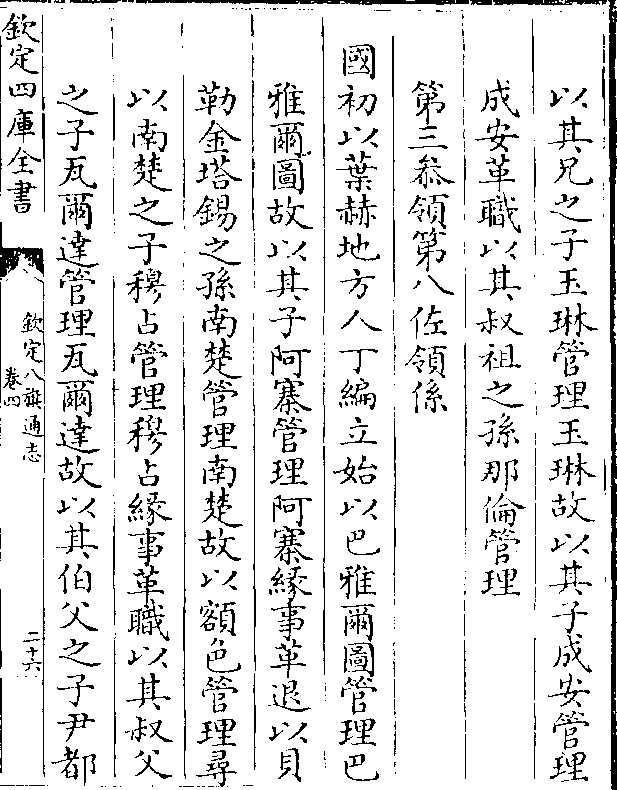 以其兄之子玉琳管理玉琳故以其子成安管理
成安革職以其叔祖之孫那倫管理
第三叅領第八佐領係
國初以葉赫地方人丁編立始以巴雅爾圖管理巴
雅爾圖故以其子阿寨管理阿寨縁事革退以貝
勒金塔錫之孫南楚管理南楚故以額色管理尋
以南楚之子穆占管理穆占縁事革職以其叔父
之子瓦爾達管理瓦爾達故以其伯父之子尹都
欽定四庫全書
欽定八旗通志
卷四
二十六